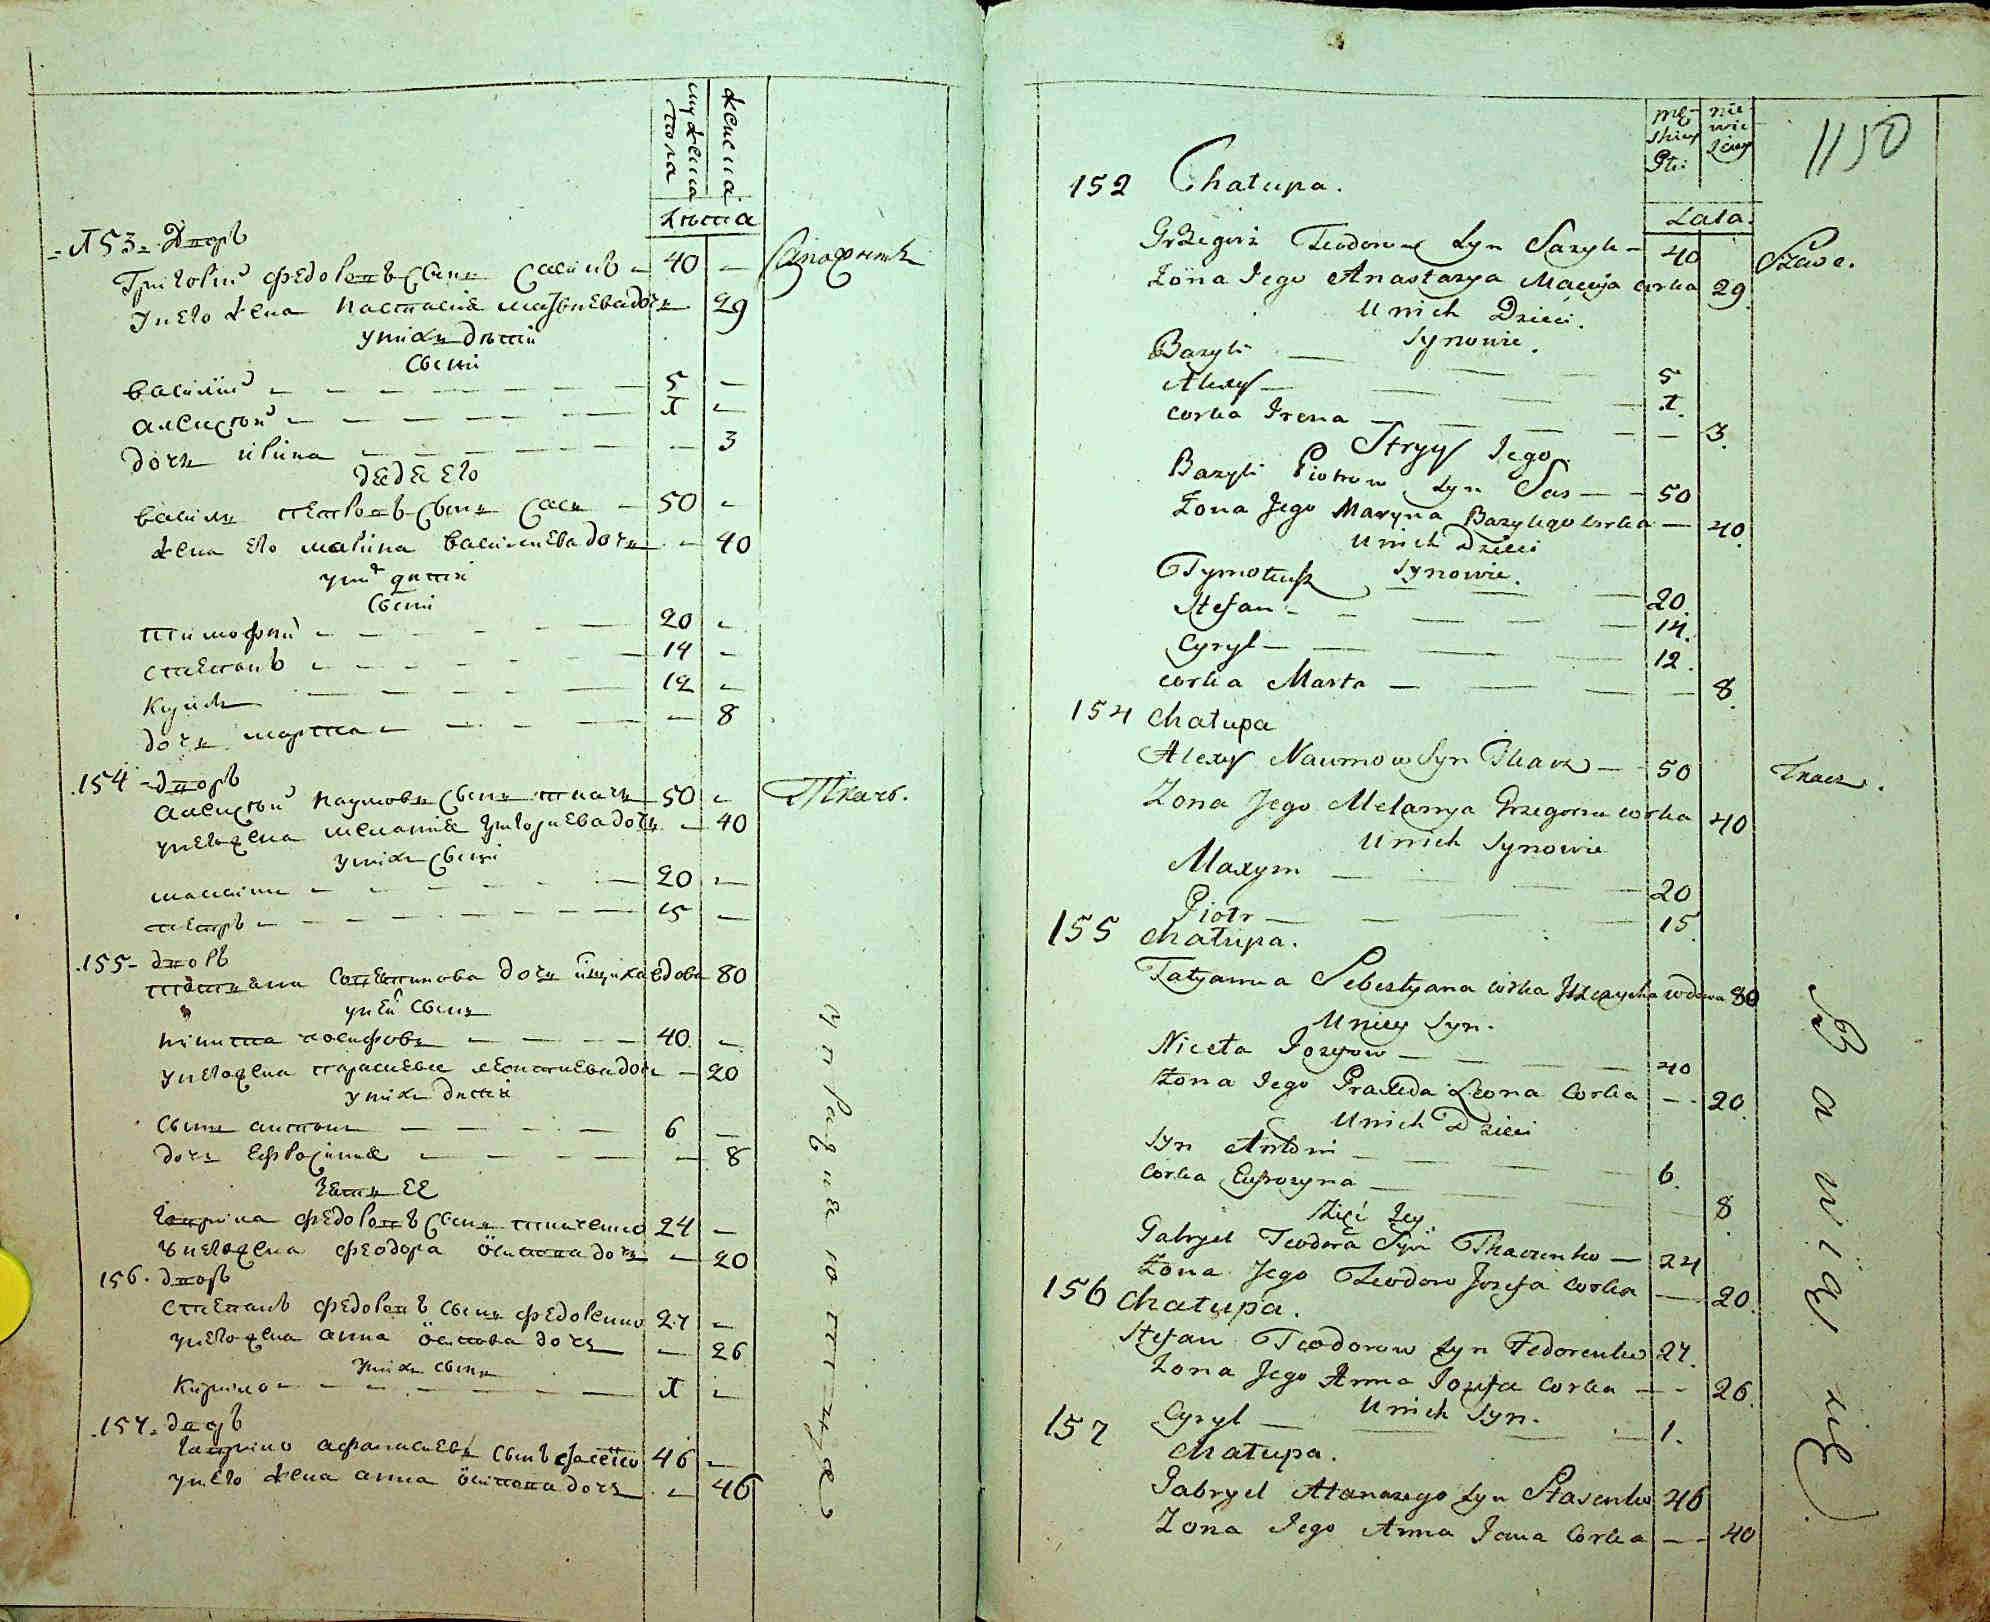 мужеска пола
женска
Лѣта
153. Дворъ
Григорий Федоровъ сынъ Сасикъ 40 Сапожникъ
у него жена Настасия Матвиева дочь 29
у них дѣти
сыни
Василий 5
Алексѣй 1
дочь Ирина 3
дядя его
Василь Петровъ сынъ Сасъ 50
жена его Марина Васильева дочь 40
у них дѣти
сыни
Тимофий 20
Степанъ 14
Кирилъ 12
дочь Марта 8
154 дворъ
Алексѣй Наумовъ сынъ Ткачъ 50 Ткачь.
у него жена Мелания Григориева дочь 40
у них сыни
Максимъ 20
Петръ 15
155 дворъ
вдова 80
у ней сынъ
Никита Иосифовъ 40
у него жена Парасиевия Леонтиева дочь 20
у них дѣти
сынъ Антонъ 6
дочь Ефросиния 8
зять ее
Гаврила Федоровъ сынъ Ткаченко 24
у него жена Феодора Осипова дочь 20
156. дворъ
Степанъ Федоровъ сынъ Федоренко 27
у него жена Анна Осипова дочь 26
у них сынъ
Кирило 1
157. дворъ
Гаврило Афанасиевъ сынъ 46
у него жена Анна Осипова дочь 46
męskiey Płci
niewieściey
1150
Lata
152 Chałupa.
Grzegorz Teodorow Syn Sasyk 40 Szewc.
Żona Jego Anastazya Macieja corka 29
U nich Dzieci.
Synowie.
Bazyli 5
Alexy 1.
corka Irena 3.
Stryy Jego.
Bazyli Piotrow Syn Sas 50
Żona Jego Maryna Bazylego corka 40.
U nich Dzieci
Synowie.
Tymoteusz 20.
Stefan 14.
Cyryl 12.
corka Marta 8.
154 Chałupa
Alexy Naumow Syn Tkacz 50 Tkacz.
Żona Jego Melanya Grzegorza corka 40
U nich Synowie
Maxym 20
Piotr 15.
155 Chałupa.
Tatyanna Sebestyana corka wdowa 80
U niey Syn.
Niceta Jozefow 40
Żona Jego Praxeda Leona Corka 20.
U nich Dzieci
Syn Antoni 6.
Corka Eufrozyna 8.
Zięć Jey
Gabryel Teodora Syn Tkaczenko 24
Żona Jego Teodora Jozefa Corka 20.
156 Chałupa.
Stefan Teodorow Syn Fedorenko 27.
Żona Jego Anna Jozefa Corka 26.
U nich Syn.
Cyryl 1.
157 Chałupa.
Gabryel Atanazego Syn Stasenko 46
Żona Jego Anna Jana Corka 40